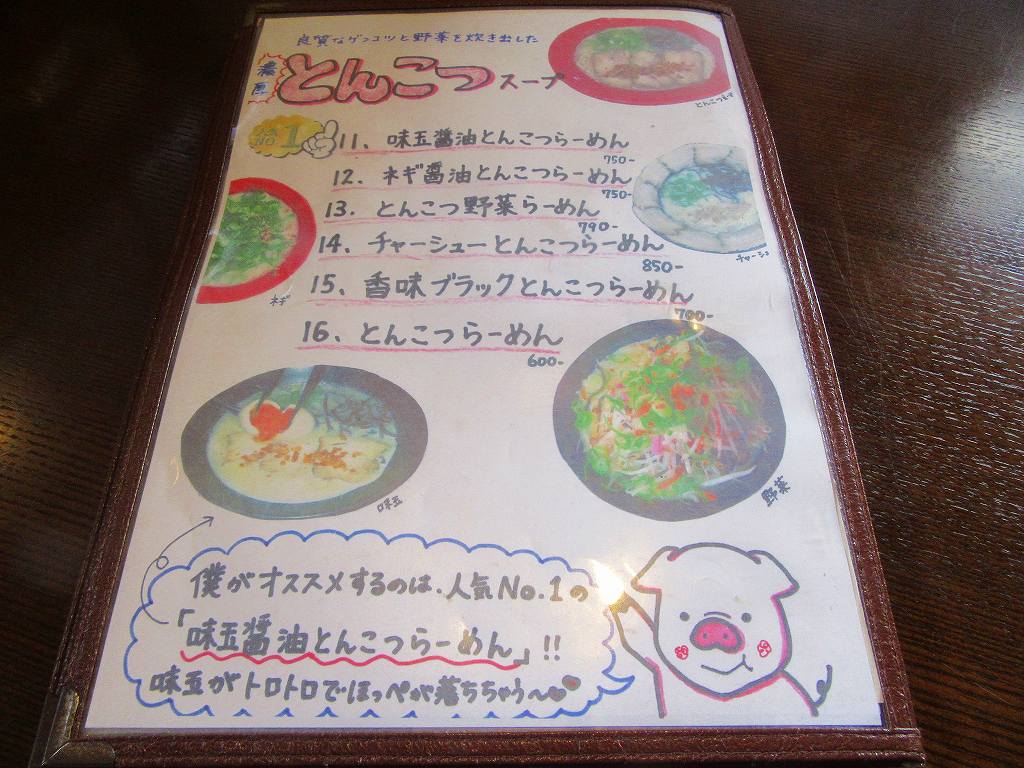 良質なゲンコツと野菜を炊き出した
濃厚 とんこつスープ
人気 NO.1
11、味玉醤油とんこつらーめん
750-
12. ネギ醤油とんこつらーめん
750-
13. とんこつ野菜らーめん
790-
14. チャーシューとんこつらーめん
850-
15、香味ブラックとんこつらーめん
700-
16、とんこつらーめん
600-
ネギ
味玉
野菜
僕がオススメするのは、人気No.1の
「味玉醤油とんこつらーめん」!!
味玉がトロトロでほっぺが落ちちゃう〜